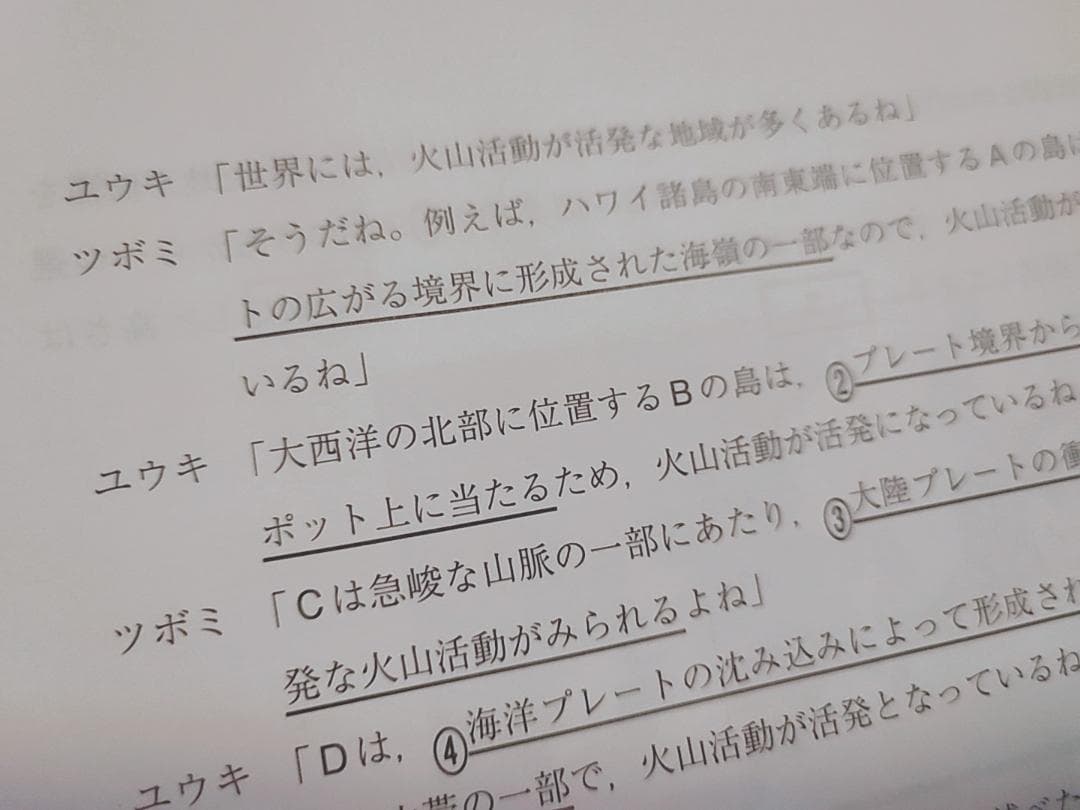 ユウキ 「世界には，火山活動が活発な地域が多くあるね」
ツボミ 「そうだね。例えば，ハワイ諸島の南東端に位置するAの島に
トの広がる境界に形成された海嶺の一部なので，火山活動が
いるね」
ユウキ 「大西洋の北部に位置するBの島は，②プレート境界から
ポット上に当たるため，火山活動が活発になっているね
ツボミ 「Cは急峻な山脈の一部にあたり，③大陸プレートの衝
発な火山活動がみられるよね」
ユウキ 「Dは，④海洋プレートの沈み込みによって形成され
帯の一部で，火山活動が活発となっているね